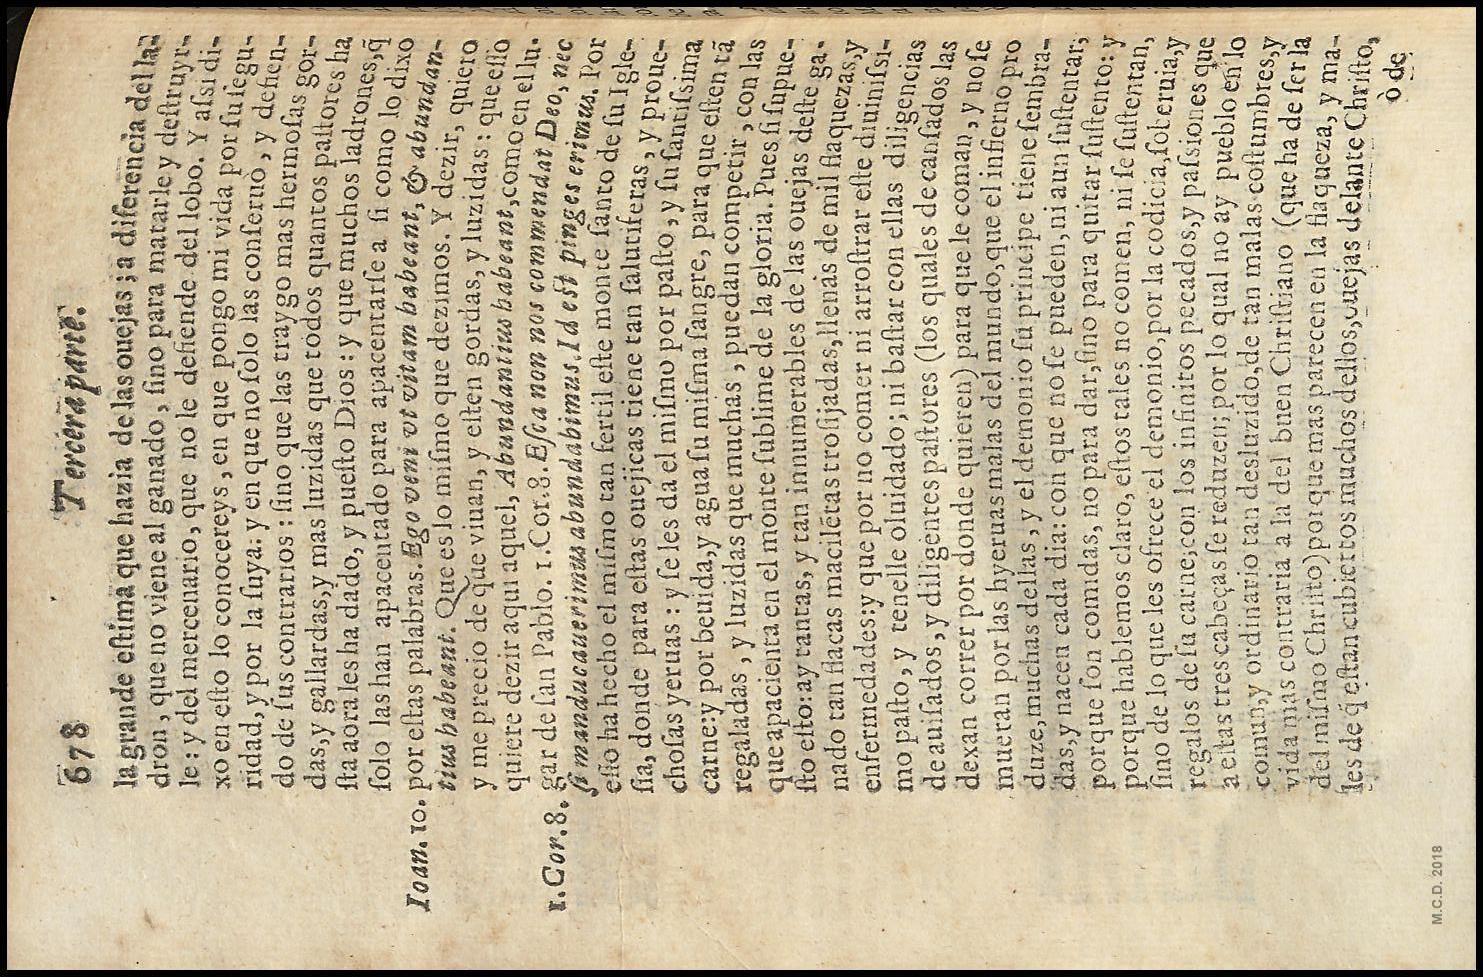 678 Tercera parte.
la grande eſtima que hazia de las ouejas; a diferencia del la-
dron, que no viene al ganado, ſino para matarle y deſtruyr-
le: y del mercenario, que no le defiende del lobo. Y aſsi di-
xo en eſto lo conocereys, en que pongo mi vida por ſu ſegu-
ridad, y por la ſuya: y en que no ſolo las conſeruo, y defien-
do de ſus contrarios: ſino que las traygo mas hermoſas gor-
das, y gallardas, y mas luzidas que todos quantos paſtores ha
ſta aora les ha dado, y pueſto Dios: y que muchos ladrones, q̃
ſolo las han apacentado para apacentarſe a ſi como lo dixo
Ioan. 10. por eſtas palabras. Ego veni vt vitam habeant, & abundan-
tius habeant. Que es lo miſmo que dezimos. Y dezir, quiero
y me precio de que viuan, y eſten gordas, y luzidas: que eſſo
quiere dezir aqui aquel, Abundantius habeant, como en el lu-
1. Cor. 8. gar de ſan Pablo. 1. Cor. 8. Eſca non nos commendat Deo, nec
ſi manducauerimus abundabimus. Id eſt pinges erimus. Por
eſſo ha hecho el miſmo tan fertil eſte monte ſanto de ſu Igle-
ſia, donde para eſtas ouejicas tiene tan ſalutiferas, y proue-
choſas yeruas: y ſe les da el miſmo por paſto, y ſu ſantiſsima
carne: y por beuida, y agua ſu miſma ſangre, para que eſten tã
regaladas, y luzidas que muchas, puedan competir, con las
que apacienta en el monte ſublime de la gloria. Pues ſi ſupue-
ſto eſto: ay tantas, y tan innumerables de las ouejas deſte ga-
nado tan flacas macilẽtas troſijadas, llenas de mil flaquezas, y
enfermedades: y que por no comer ni arroſtrar eſte diuiniſsi-
mo paſto, y tenelle oluidado; ni baſtar con ellas diligencias
de auiſados, y diligentes paſtores (los quales de canſados las
dexan correr por donde quieren) para que le coman, y no ſe
mueran por las hyeruas malas del mundo, que el infierno pro
duze, muchas dellas, y el demonio ſu principe tiene ſembra-
das, y nacen cada dia: con que no ſe pueden, ni aun ſuſtentar;
porque ſon comidas, no para dar, ſino para quitar ſuſtento: y
porque hablemos claro, eſtos tales no comen, ni ſe ſuſtentan,
ſino de lo que les ofrece el demonio, por la codicia, ſoberuia, y
regalos de ſu carne; con los infinitos pecados, y paſsiones que
a eſtas tres cabeças ſe reduzen; por lo qual no ay pueblo en lo
comun, y ordinario tan desluzido, de tan malas coſtumbres, y
vida mas contraria a la del buen Chriſtiano (que ha de ſer la
del miſmo Chriſto) porque mas parecen en la flaqueza, y ma-
les de q̃ eſtan cubiertos muchos dellos, ouejas delante Chriſto,
ò de
M.C.D. 2018